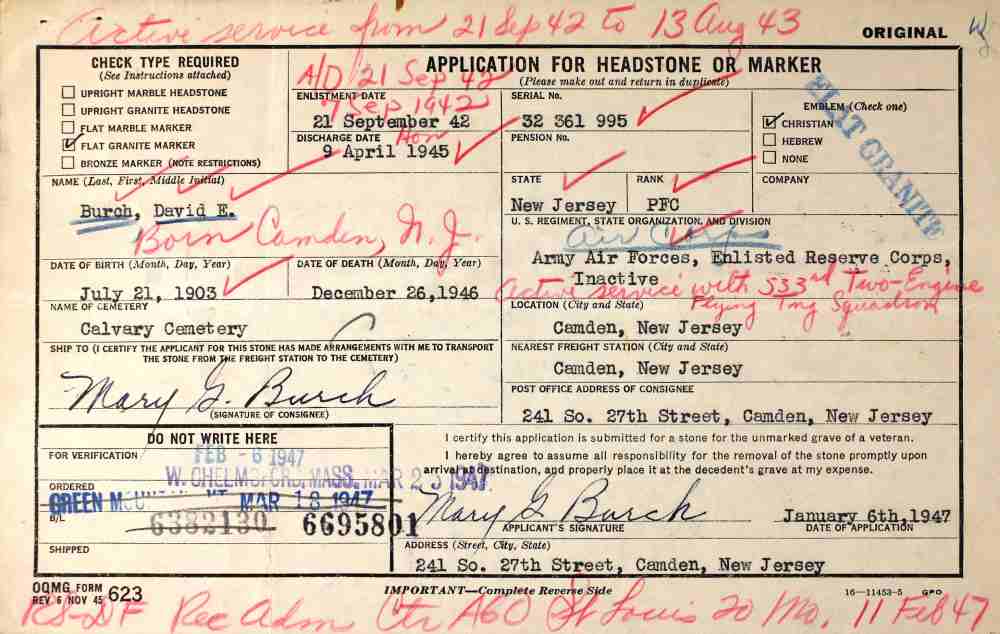 Active service from 21 Sep 42 to 13 Aug 43
ORIGINAL
CHECK TYPE REQUIRED
(See Instructions attached)
UPRIGHT MARBLE HEADSTONE
UPRIGHT GRANITE HEADSTONE
FLAT MARBLE MARKER
FLAT GRANITE MARKER
BRONZE MARKER (NOTE RESTRICTIONS)
APPLICATION FOR HEADSTONE OR MARKER
(Please make out and return in duplicate)
A/D 21 Sep 42
ENLISTMENT DATE
7 Sep 1942
21 September 42
DISCHARGE DATE
Hon
9 April 1945
SERIAL No.
32 361 995
PENSION No.
EMBLEM (Check one)
CHRISTIAN
HEBREW
NONE
FLAT GRANITE
NAME (Last, First, Middle Initial)
Burch, David E.
Born Camden, N.J.
STATE
New Jersey
RANK
PFC
COMPANY
U. S. REGIMENT, STATE ORGANIZATION, AND DIVISION
Air Corps
Army Air Forces, Enlisted Reserve Corps,
Inactive
Active service with 533rd Two-Engine
Flying Tng Squadron
DATE OF BIRTH (Month, Day, Year)
July 21, 1903
DATE OF DEATH (Month, Day, Year)
December 26,1946
NAME OF CEMETERY
Calvary Cemetery
LOCATION (City and State)
Camden, New Jersey
SHIP TO (I CERTIFY THE APPLICANT FOR THIS STONE HAS MADE ARRANGEMENTS WITH ME TO TRANSPORT
THE STONE FROM THE FREIGHT STATION TO THE CEMETERY)
Mary G. Burch
(SIGNATURE OF CONSIGNEE)
NEAREST FREIGHT STATION (City and State)
Camden, New Jersey
POST OFFICE ADDRESS OF CONSIGNEE
241 So. 27th Street, Camden, New Jersey
DO NOT WRITE HERE
FOR VERIFICATION
FEB -6 1947
W. CHELMSFORD, MASS. MAR 23 1947
ORDERED
GREEN MOUNTAIN, VT MAR 18 1947
B/L
6382130 6695801
SHIPPED
I certify this application is submitted for a stone for the unmarked grave of a veteran.
I hereby agree to assume all responsibility for the removal of the stone promptly upon
arrival at destination, and properly place it at the decedent's grave at my expense.
Mary G Burch
APPLICANT'S SIGNATURE
January 6th,1947
DATE OF APPLICATION
ADDRESS (Street, City, State)
241 So. 27th Street, Camden, New Jersey
OQMG FORM 623
REV 6 NOV 45
IMPORTANT—Complete Reverse Side
16—11453-5 GPO
RS-DF Rec Adm Ctr AGO St Louis 20 Mo. 11 Feb 47